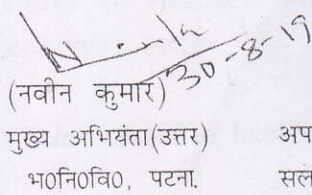 30-8-19
(नवीन कुमार)
मुख्य अभियंता(उत्तर) अप
भ0नि0वि0, पटना. सल